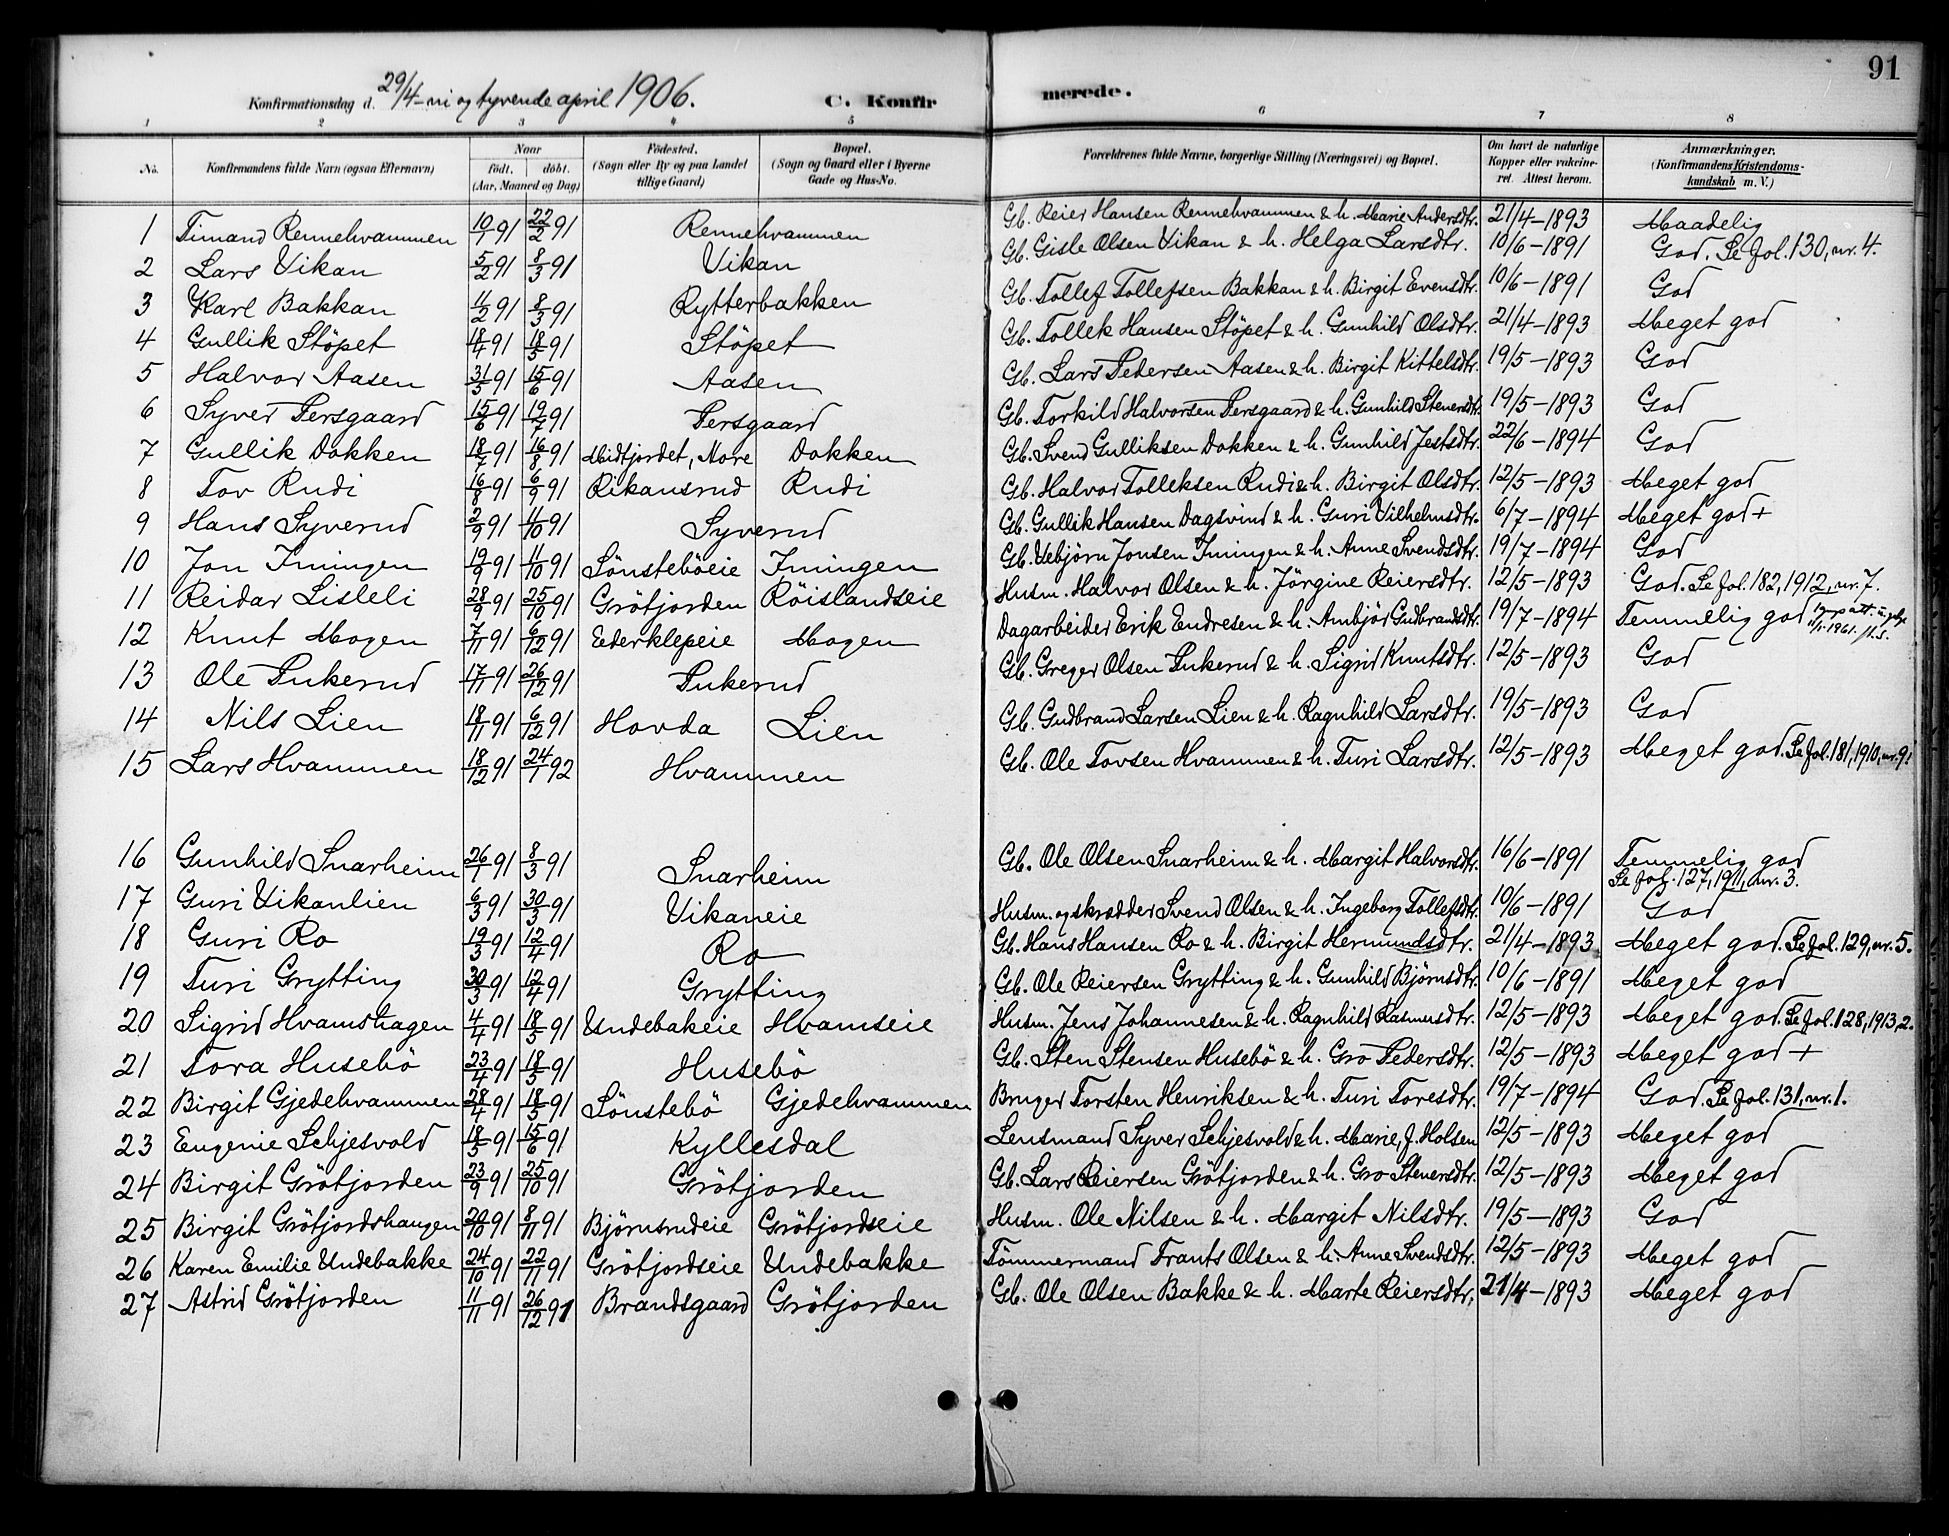 91
Konfirmationsdag d. 29/4 - ni og tyvende april 1906. C. Konfirmerede.
1 2 3 4 5 6 7 8
No. Konfirmandens fulde Navn (ogsaa Efternavn) Naar født. døbt. (Aar, Maaned og Dag) Fødested. (Sogn eller By og paa Landet tillige Gaard) Bopæl. (Sogn og Gaard eller i Byerne Gade og Hus-No. Forældrenes fulde Navne, borgerlige Stilling (Næringsvei) og Bopæl. Om havt de naturlige Kopper eller vakcineret. Attest herom. Anmærkninger. (Konfirmandens Kristendomskundskab m. V.)
1 Timand Rennehvammen 10/1 91 22/2 91 Rennehvammen Gb. Reier Hansen Rennehvammen & h. Marie Andersdtr. 21/4-1893 Maadelig
2 Lars Vikan 5/2 91 8/3 91 Vikan Gb. Gisle Olsen Vikan & h. Helga Larsdtr. 10/6-1891 God. Se fol. 130, nr. 4.
3 Karl Bakkan 4/2 91 8/3 91 Rytterbakken Gb. Tollef Tollefsen Bakkan & h. Birgit Evensdtr. 10/6-1891 God
4 Gullik Stöpet 18/4 91 18/5 91 Stöpet Gb. Tollek Hansen Stöpet & h. Gunhild Olsdtr. 21/4-1893 Meget god
5 Halvor Aasen 31/5 91 15/6 91 Aasen Gb. Lars Pedersen Aasen & h. Birgit Kittelsdtr. 19/5-1893 God
6 Syver Persgaard 15/6 91 19/7 91 Persgaard Gb. Torkild Halvorsen Persgaard & h. Gunhild Stenersdtr. 19/5-1893 God
7 Gullik Dokken 18/7 91 16/8 91 Midtfjordet, Nore Dokken Gb. Svend Gulliksen Dokken & h. Gunhild Jestsdtr. 22/6-1894 God
8 Tov Rudi 16/8 91 6/9 91 Rikansrud Rudi Gb. Halvor Tolleksen Rudi & h. Birgit Olsdtr. 12/5-1893 Meget god
9 Hans Syverud 2/9 91 4/10 91 Syverud Gb. Gullik Hansen Dagsvind & h. Guri Vilhelmsdtr. 6/7-1894 Meget god +
10 Jon Imingen 19/9 91 11/10 91 Sönsteböeie Imingen Gb. Vebjørn Jonsen Imingen & h. Anne Svendsdtr. 19/7-1894 God
11 Reidar Lisleli 28/9 91 25/10 91 Grötfjorden Röislandseie Husm. Halvor Olsen & h. Jörgine Reiersdtr. 12/5-1893 God. Se fol. 182, 1912, nr. 7.
12 Knut Mogen 7/11 91 6/12 91 Ederklepeie Mogen Dagarbeider Erik Endresen & h. Ambjör Gudbrandsdtr. 19/7-1894 Temmelig god
13 Ole Tukerud 17/11 91 26/12 91 Tukerud Gb. Greger Olsen Tukerud & h. Sigrid Knutsdtr. 12/5-1893 God
14 Nils Lien 18/11 91 6/12 91 Hovda Lien Gb. Gudbrand Larsen Lien & h. Ragnhild Larsdtr. 19/5-1893 God
15 Lars Hvammen 18/12 91 24/1 92 Hvammen Gb. Ole Tovsen Hvammen & h. Turi Larsdtr. 12/5-1893 Meget god. Se fol. 181, 1910, nr. 9.
16 Gunhild Snarheim 26/1 91 8/3 91 Snarheim Gb. Ole Olsen Snarheim & h. Margit Halvorsdtr. 16/6-1891 Temmelig god Se fol. 127, 1911, nr. 3.
17 Guri Vikanlien 6/3 91 30/3 91 Vikaneie Husm. og skrædder Svend Olsen & h. Ingeborg Tollefsdtr. 10/6-1891 God
18 Guri Ro 19/3 91 12/4 91 Ro Gb. Hans Hansen Ro & h. Birgit Hermundsdtr. 21/4-1893 Meget god. Se fol. 129, nr. 5.
19 Turi Grytting 30/3 91 12/4 91 Grytting Gb. Ole Reiersen Grytting & h. Gunhild Bjørnsdtr. 10/6-1891 Meget god
20 Sigrid Hvamshagen 4/4 91 18/5 91 Undebakeie Hvamseie Husm. Jens Johannesen & h. Ragnhild Rasmusdtr. 12/5-1893 Meget god. Se fol. 128, 1913, 2.
21 Tora Husebö 23/4 91 18/5 91 Husebö Gb. Sten Stensen Husebö & h. Gro Pedersdtr. 12/5-1893 Meget god +
22 Birgit Gjedehvammen 28/4 91 18/5 91 Sönstebö Gjedehvammen Bruger Torsten Henriksen & h. Turi Toresdtr. 19/7-1894 God. Se fol. 131, nr. 1.
23 Eugenie Schjesvold 18/5 91 15/6 91 Kyllesdal Lensmand Syver Schjesvold & h. Marie, f. Holsen 12/5-1893 Meget god
24 Birgit Grötfjorden 23/9 91 25/10 91 Grötfjorden Gb. Lars Reiersen Grötfjorden & h. Gro Stenersdtr. 12/5-1893 Meget god
25 Birgit Grötfjordshaugen 20/10 91 8/11 91 Bjørnsrudeie Grötfjordseie Husm. Ole Nilsen & h. Margit Nilsdtr. 19/5-1893 God
26 Karen Emilie Undebakke 24/10 91 22/11 91 Grötfjordseie Undebakke Tömmermand Frants Olsen & h. Anne Svendsdtr. 12/5-1893 Meget god
27 Astrid Grötfjorden 11/11 91 26/12 91 Brandsgaard Grötfjorden Gb. Ole Olsen Bakke & h. Marte Reiersdtr. 21/4-1893 Meget god